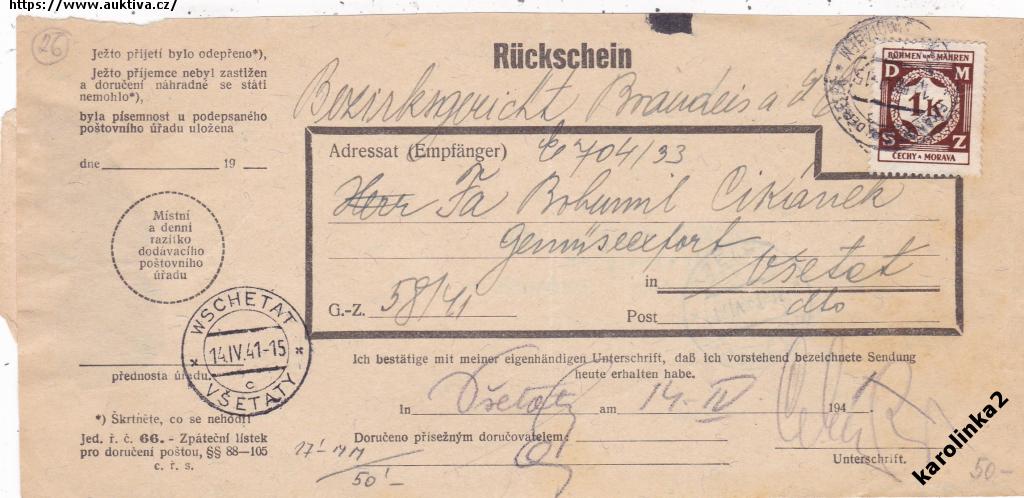 https://www.auktiva.cz/
26
Ježto přijetí bylo odepřeno*),
Ježto příjemce nebyl zastižen
a doručení náhradně se státi
nemohlo*),
byla písemnost u podepsaného
poštovního úřadu uložena
dne 19
Místní
a denní
razítko
dodávacího
poštovního
úřadu
WSCHETAT
14.IV.41-15
c
VŠETATY
přednosta úřadu.
*) Škrtněte, co se nehodí
Jed. ř. č. 66. - Zpáteční lístek
pro doručení poštou, §§ 88—105
c. ř. s.
Rückschein
Bezirksgericht Brandeis a
BÖHMEN UND MÄHREN
D M
1K
S Z
ČECHY A MORAVA
Adressat (Empfänger) 704/33
Herr Fa Bohumil Cikánek
Gemüseexport
in Všetat
G.-Z. 58/41
Post dto
Ich bestätige mit meiner eigenhändigen Unterschrift, daß ich vorstehend bezeichnete Sendung
heute erhalten habe.
In Všetaty am 14-IV 194
Doručeno přísežným doručovatelem:
Unterschrift.
50
50-
karolinka2